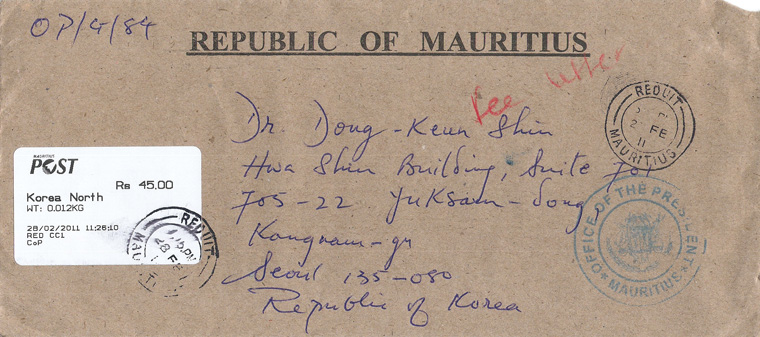 OP/4/84
REPUBLIC OF MAURITIUS
See letter
REDUIT
2 FE
11
MAURITIUS
Dr. Dong-Keun Shin
Hwa Shin Building, Suite 701
705-22 Yuksam-dong,
Kangnam-gu
Seoul 135-080
Republic of Korea
MAURITIUS
POST
Rs 45.00
Korea North
WT: 0.012KG
28/02/2011 11:26:10
RED CC1
CoP
REDUIT
28 FE
OFFICE OF THE PRESIDENT
MAURITIUS